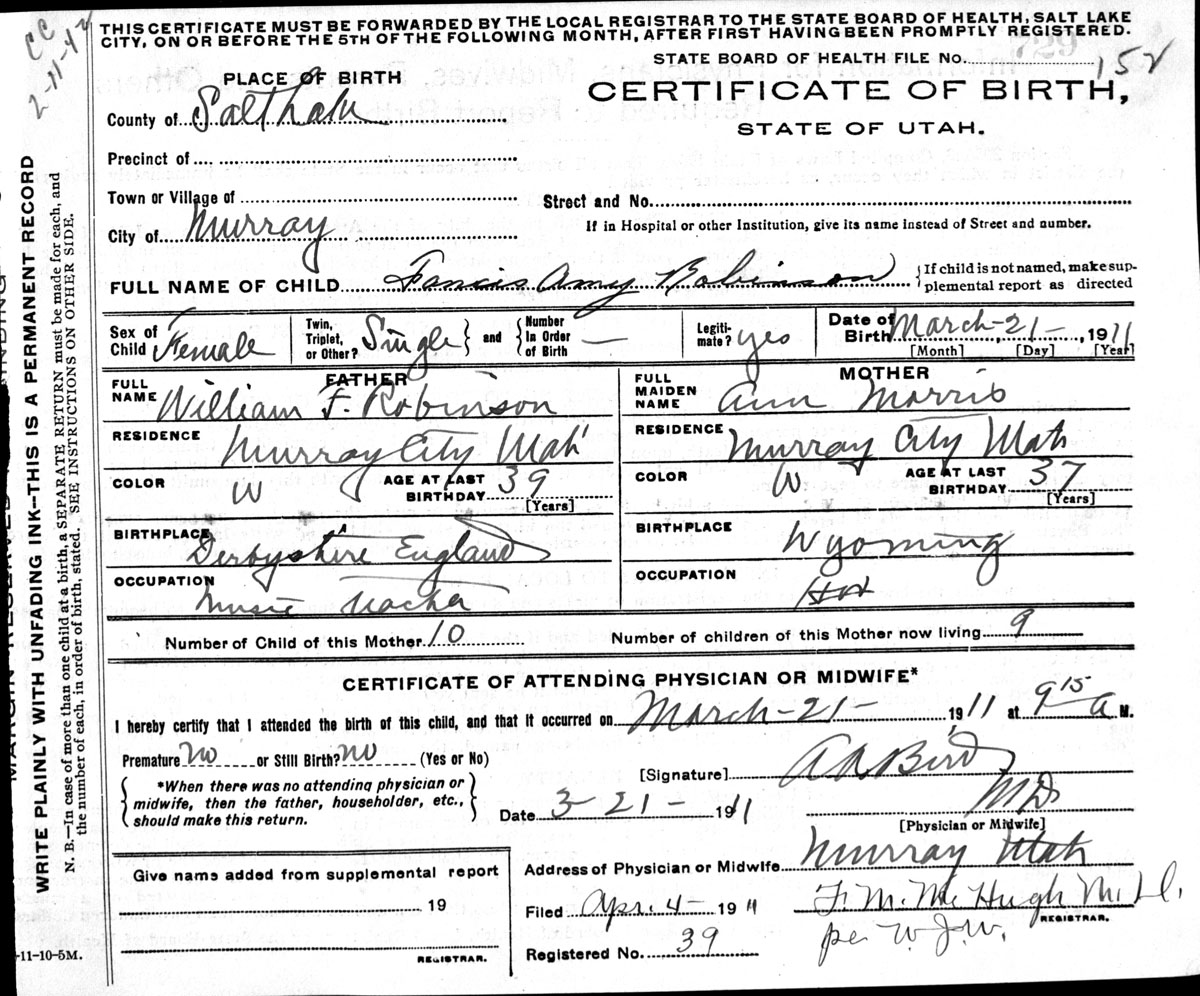 CC
2-11-42
THIS CERTIFICATE MUST BE FORWARDED BY THE LOCAL REGISTRAR TO THE STATE BOARD OF HEALTH, SALT LAKE
CITY, ON OR BEFORE THE 5TH OF THE FOLLOWING MONTH, AFTER FIRST HAVING BEEN PROMPTLY REGISTERED.
STATE BOARD OF HEALTH FILE No. 152
PLACE OF BIRTH
CERTIFICATE OF BIRTH,
STATE OF UTAH.
County of Salt Lake
Precinct of
Town or Village of
Street and No.
City of Murray
If in Hospital or other Institution, give its name instead of Street and number.
FULL NAME OF CHILD Francis Amy Robinson
{If child is not named, make sup-
plemental report as directed
Sex of Child Female
Twin, Triplet, or Other? Single } and { Number In Order of Birth —
Legiti-mate? yes
Date of Birth March-21-, 1911
[Month] [Day] [Year]
FATHER
MOTHER
FULL NAME William F. Robinson
FULL MAIDEN NAME Ann Morris
RESIDENCE Murray City Utah
RESIDENCE Murray City Utah
COLOR W AGE AT LAST BIRTHDAY 39 [Years]
COLOR W AGE AT LAST BIRTHDAY 37 [Years]
BIRTHPLACE Derbyshire England
BIRTHPLACE Wyoming
OCCUPATION Music Teacher
OCCUPATION
Number of Child of this Mother 10
Number of children of this Mother now living 9
CERTIFICATE OF ATTENDING PHYSICIAN OR MIDWIFE*
I hereby certify that I attended the birth of this child, and that it occurred on March-21- 1911 at 9 15 a M.
Premature No or Still Birth? No (Yes or No)
[Signature] Bird
MD
*When there was no attending physician or
midwife, then the father, householder, etc.,
should make this return.
Date 3-21- 1911
[Physician or Midwife]
Give name added from supplemental report
19
REGISTRAR.
Address of Physician or Midwife Murray Utah
Filed Apr. 4- 1911
F. M. McHugh M.D.
REGISTRAR.
per W.J.W.
Registered No. 39
-11-10-5M.
WRITE PLAINLY WITH UNFADING INK—THIS IS A PERMANENT RECORD
N. B.—In case of more than one child at a birth, a SEPARATE RETURN must be made for each, and
the number of each, in order of birth, stated. SEE INSTRUCTIONS ON OTHER SIDE.